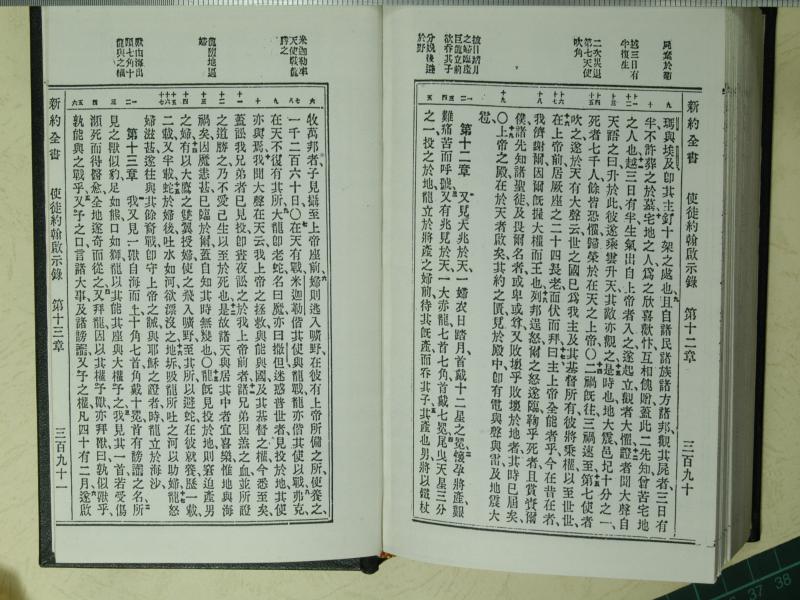 新約全書
使徒約翰啟示錄
第十二章
三百九十
屍棄於街
越三日有半復生
二次災退第七天使吹角
彼日踏月之婦臨產巨龍立前欲吞其子
分娩後遁於野
瑪與埃及卽其主釘十架之處也且自諸民諸族諸方諸邦觀其屍者三日有
半不許葬之於墓宅地之人為之欣喜歡忭互相餽贈蓋此二先知曾苦宅地
之人也越三日有半生氣出自上帝者入之遂起立觀者大懼證者聞大聲自
天語之曰升於此彼遂乘雲升天其敵亦觀之是時也地大震邑圮十分之一
死者七千人餘皆恐懼歸榮於在天之上帝〇二禍既往三禍速至第七使者
吹之遂於天有大聲云世之國已為我主及其基督所有彼將秉權以至世世
在上帝前居厥座之二十四長老面伏而拜曰主上帝全能者乎今在昔在者
我儕謝爾因爾既握大權而王也列邦逞怒爾之怒遂臨鞫乎死者且賞賚爾
僕諸先知諸聖徒及畏爾名者或卑或尊又敗壞乎敗壞於地者其時已屆矣
〇上帝之殿在於天者啟矣其約之匱見於殿中卽有電與聲與雷及地震大
雹
第十二章 又見天兆於天一婦衣日踏月首戴十二星之冕懷孕將產艱
難痛苦而呼號又有兆見於天一大赤龍七首七角首戴七冕尾曳天星三分
之一投之於地龍立於將產之婦前待其既產而吞其子其產也男將以鐵杖
新約全書
使徒約翰啟示錄
第十三章
三百九十一
米迦勒率天使戰龍勝之
龍謫地迫婦
獸由海出頭七角十龍與之權
牧萬邦者子見攝至上帝座前婦則逃入曠野在彼有上帝所備之所使養之
一千二百六十日〇在天有戰米迦勒偕其使與龍戰龍亦偕其使以戰弗克
在天不復有其所大龍卽老蛇名曰魔亦曰撒但迷惑普世者見投於地其使
亦與焉我聞大聲在天云我上帝之拯救與能與國及其基督之權今悉至矣
蓋訟我兄弟者已見投卽晝夜訟之於我上帝前者諸兄弟因羔之血並所證
之道勝之乃不愛己生以至於死也是故諸天與居其中者宜喜樂惟地與海
禍矣因魔恚甚已臨於爾蓋自知其時無幾也〇龍既見投於地則窘迫產男
之婦有以大鷹之雙翼授婦使之飛入曠野至其所以避蛇在彼就養歷一載
二載又半載蛇於婦後吐水如河欲漂沒之地坼吸龍所吐之河以助婦龍怒
婦滋甚遂往與其餘裔戰卽守上帝之誡與耶穌之證者時龍立於海沙
第十三章 我又見一獸自海而上十角七首角戴十冕首有謗讟之名所
見之獸似豹足如熊口如獅龍以其能其座與大權予之我見其一首若受傷
瀕死而得醫愈全地遂奇而從之又拜龍因以其權予獸亦拜獸曰孰似獸乎
孰能與之戰乎又予之口言諸大事及諸謗讟又予之權凡四十有二月遂